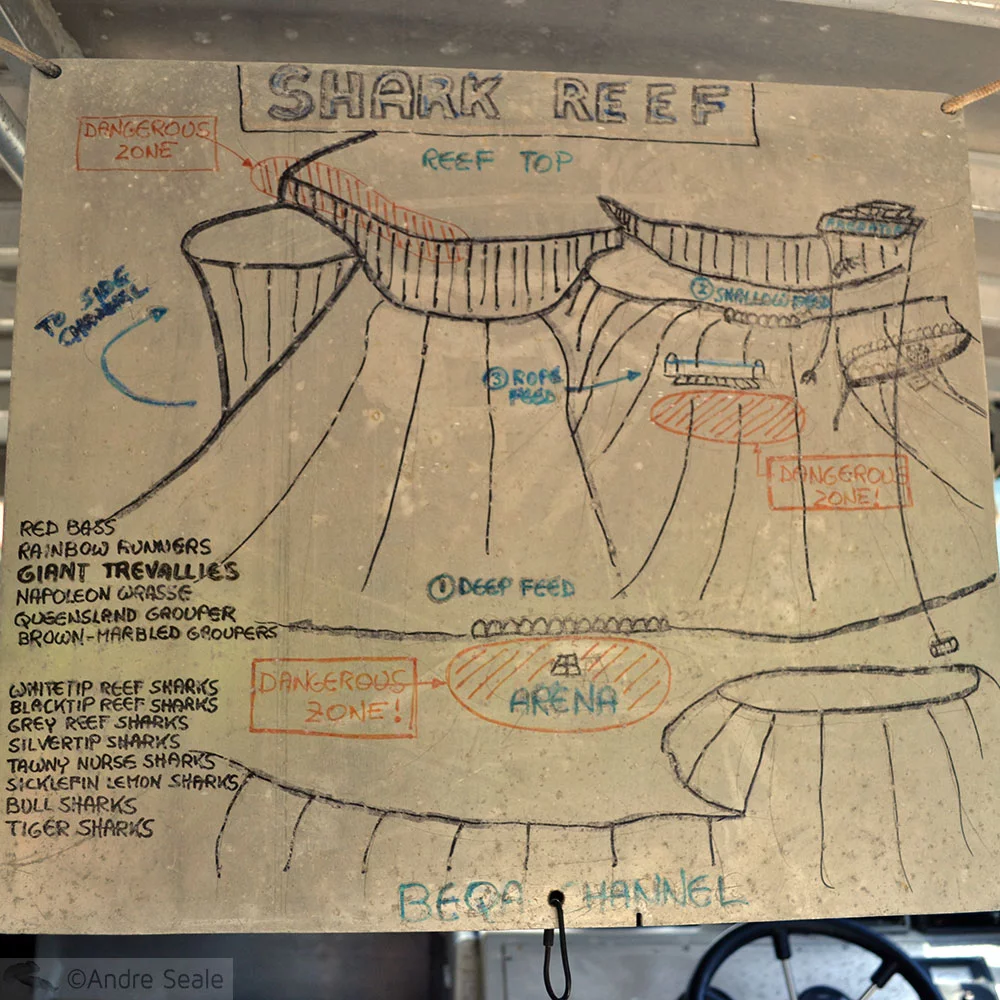 SHARK REEF
DANGEROUS
ZONE
REEF TOP
TO SIDE
CHANNEL
② SHALLOW FEED
③ ROPE
FEED
DANGEROUS
ZONE!
RED BASS
RAINBOW RUNNERS
GIANT TREVALLIES
NAPOLEON WRASSE
QUEENSLAND GROUPER
BROWN-MARBLED GROUPERS
① DEEP FEED
DANGEROUS
ZONE!
ARENA
WHITETIP REEF SHARKS
BLACKTIP REEF SHARKS
GREY REEF SHARKS
SILVERTIP SHARKS
TAWNY NURSE SHARKS
SICKLEFIN LEMON SHARKS
BULL SHARKS
TIGER SHARKS
BEQA CHANNEL
©Andre Seale